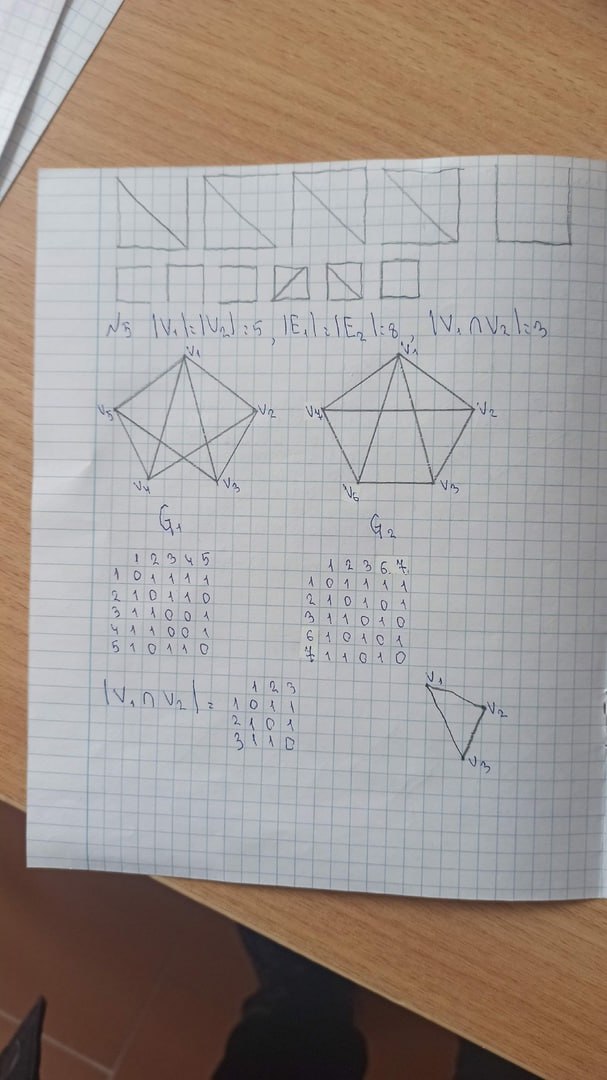 N5 |V₁|=|V₂|=5, |E₁|=|E₂|=8, |V₁∩V₂|=3
V1
V5 V2
V4 V3
G₁
V1
V7 V2
V6 V3
G₂
1 2 3 4 5
1 0 1 1 1 1
2 1 0 1 1 0
3 1 1 0 0 1
4 1 1 0 0 1
5 1 0 1 1 0
1 2 3 6 7
1 0 1 1 1 1
2 1 0 1 0 1
3 1 1 0 1 0
6 1 0 1 0 1
7 1 1 0 1 0
|V₁∩V₂|=
1 2 3
1 0 1 1
2 1 0 1
3 1 1 0
V1
V2
V3